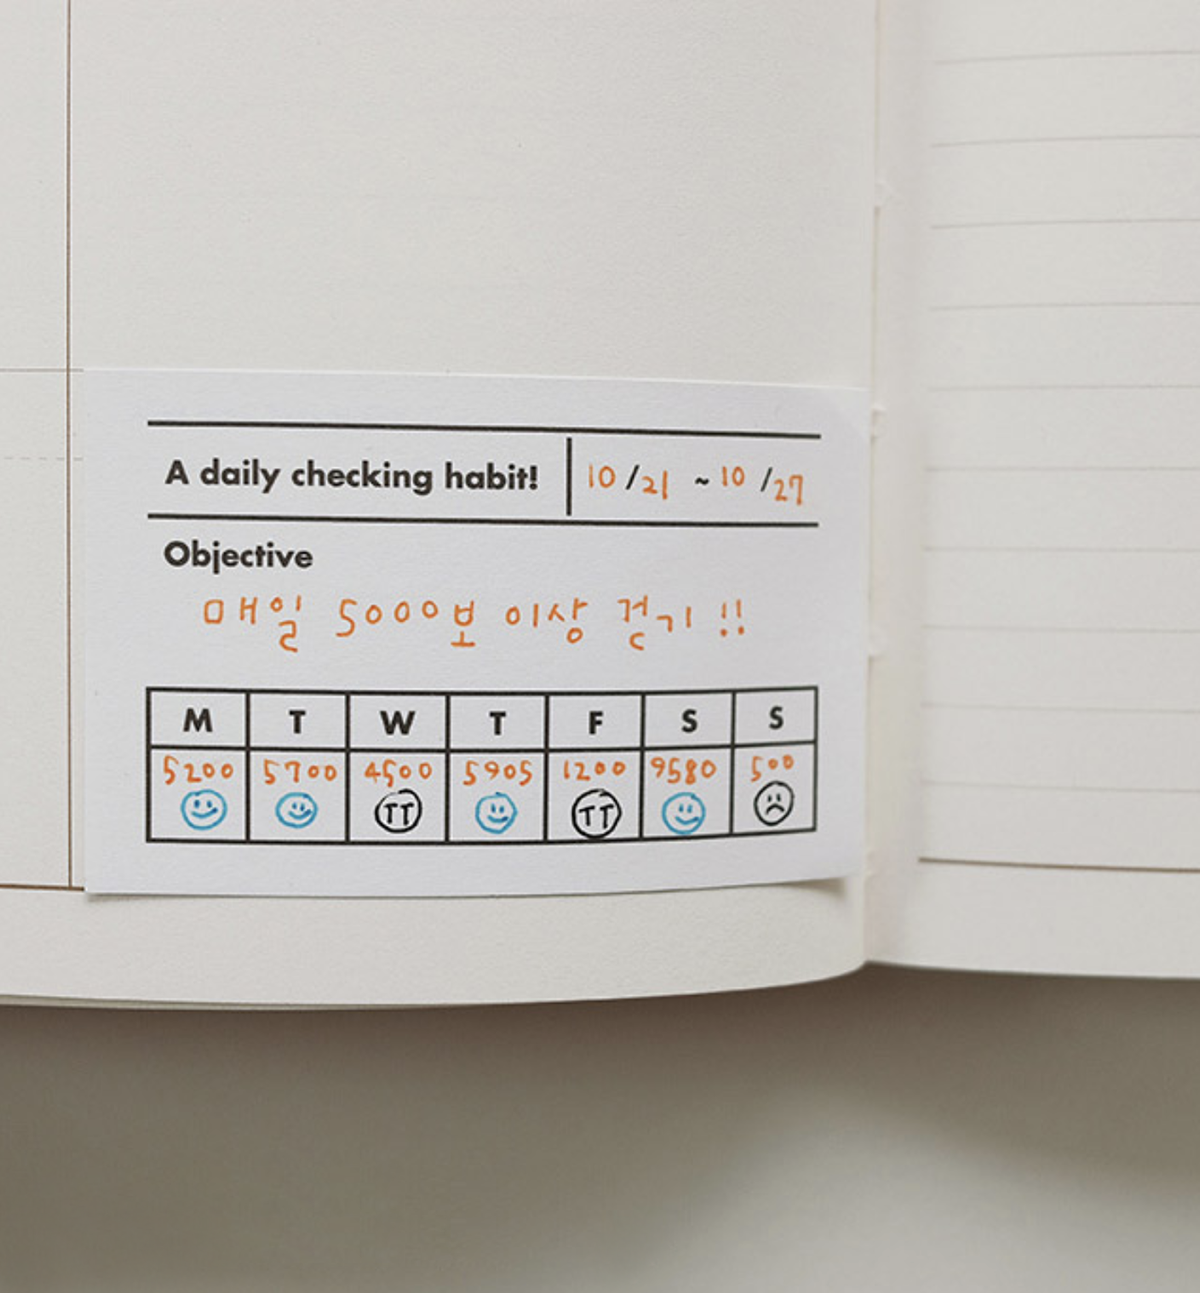 A daily checking habit! 10/21 ~ 10/27
Objective
매일 5000보 이상 걷기 !!
M T W T F S S
5200 5700 4500 5905 1200 9580 500
TT TT